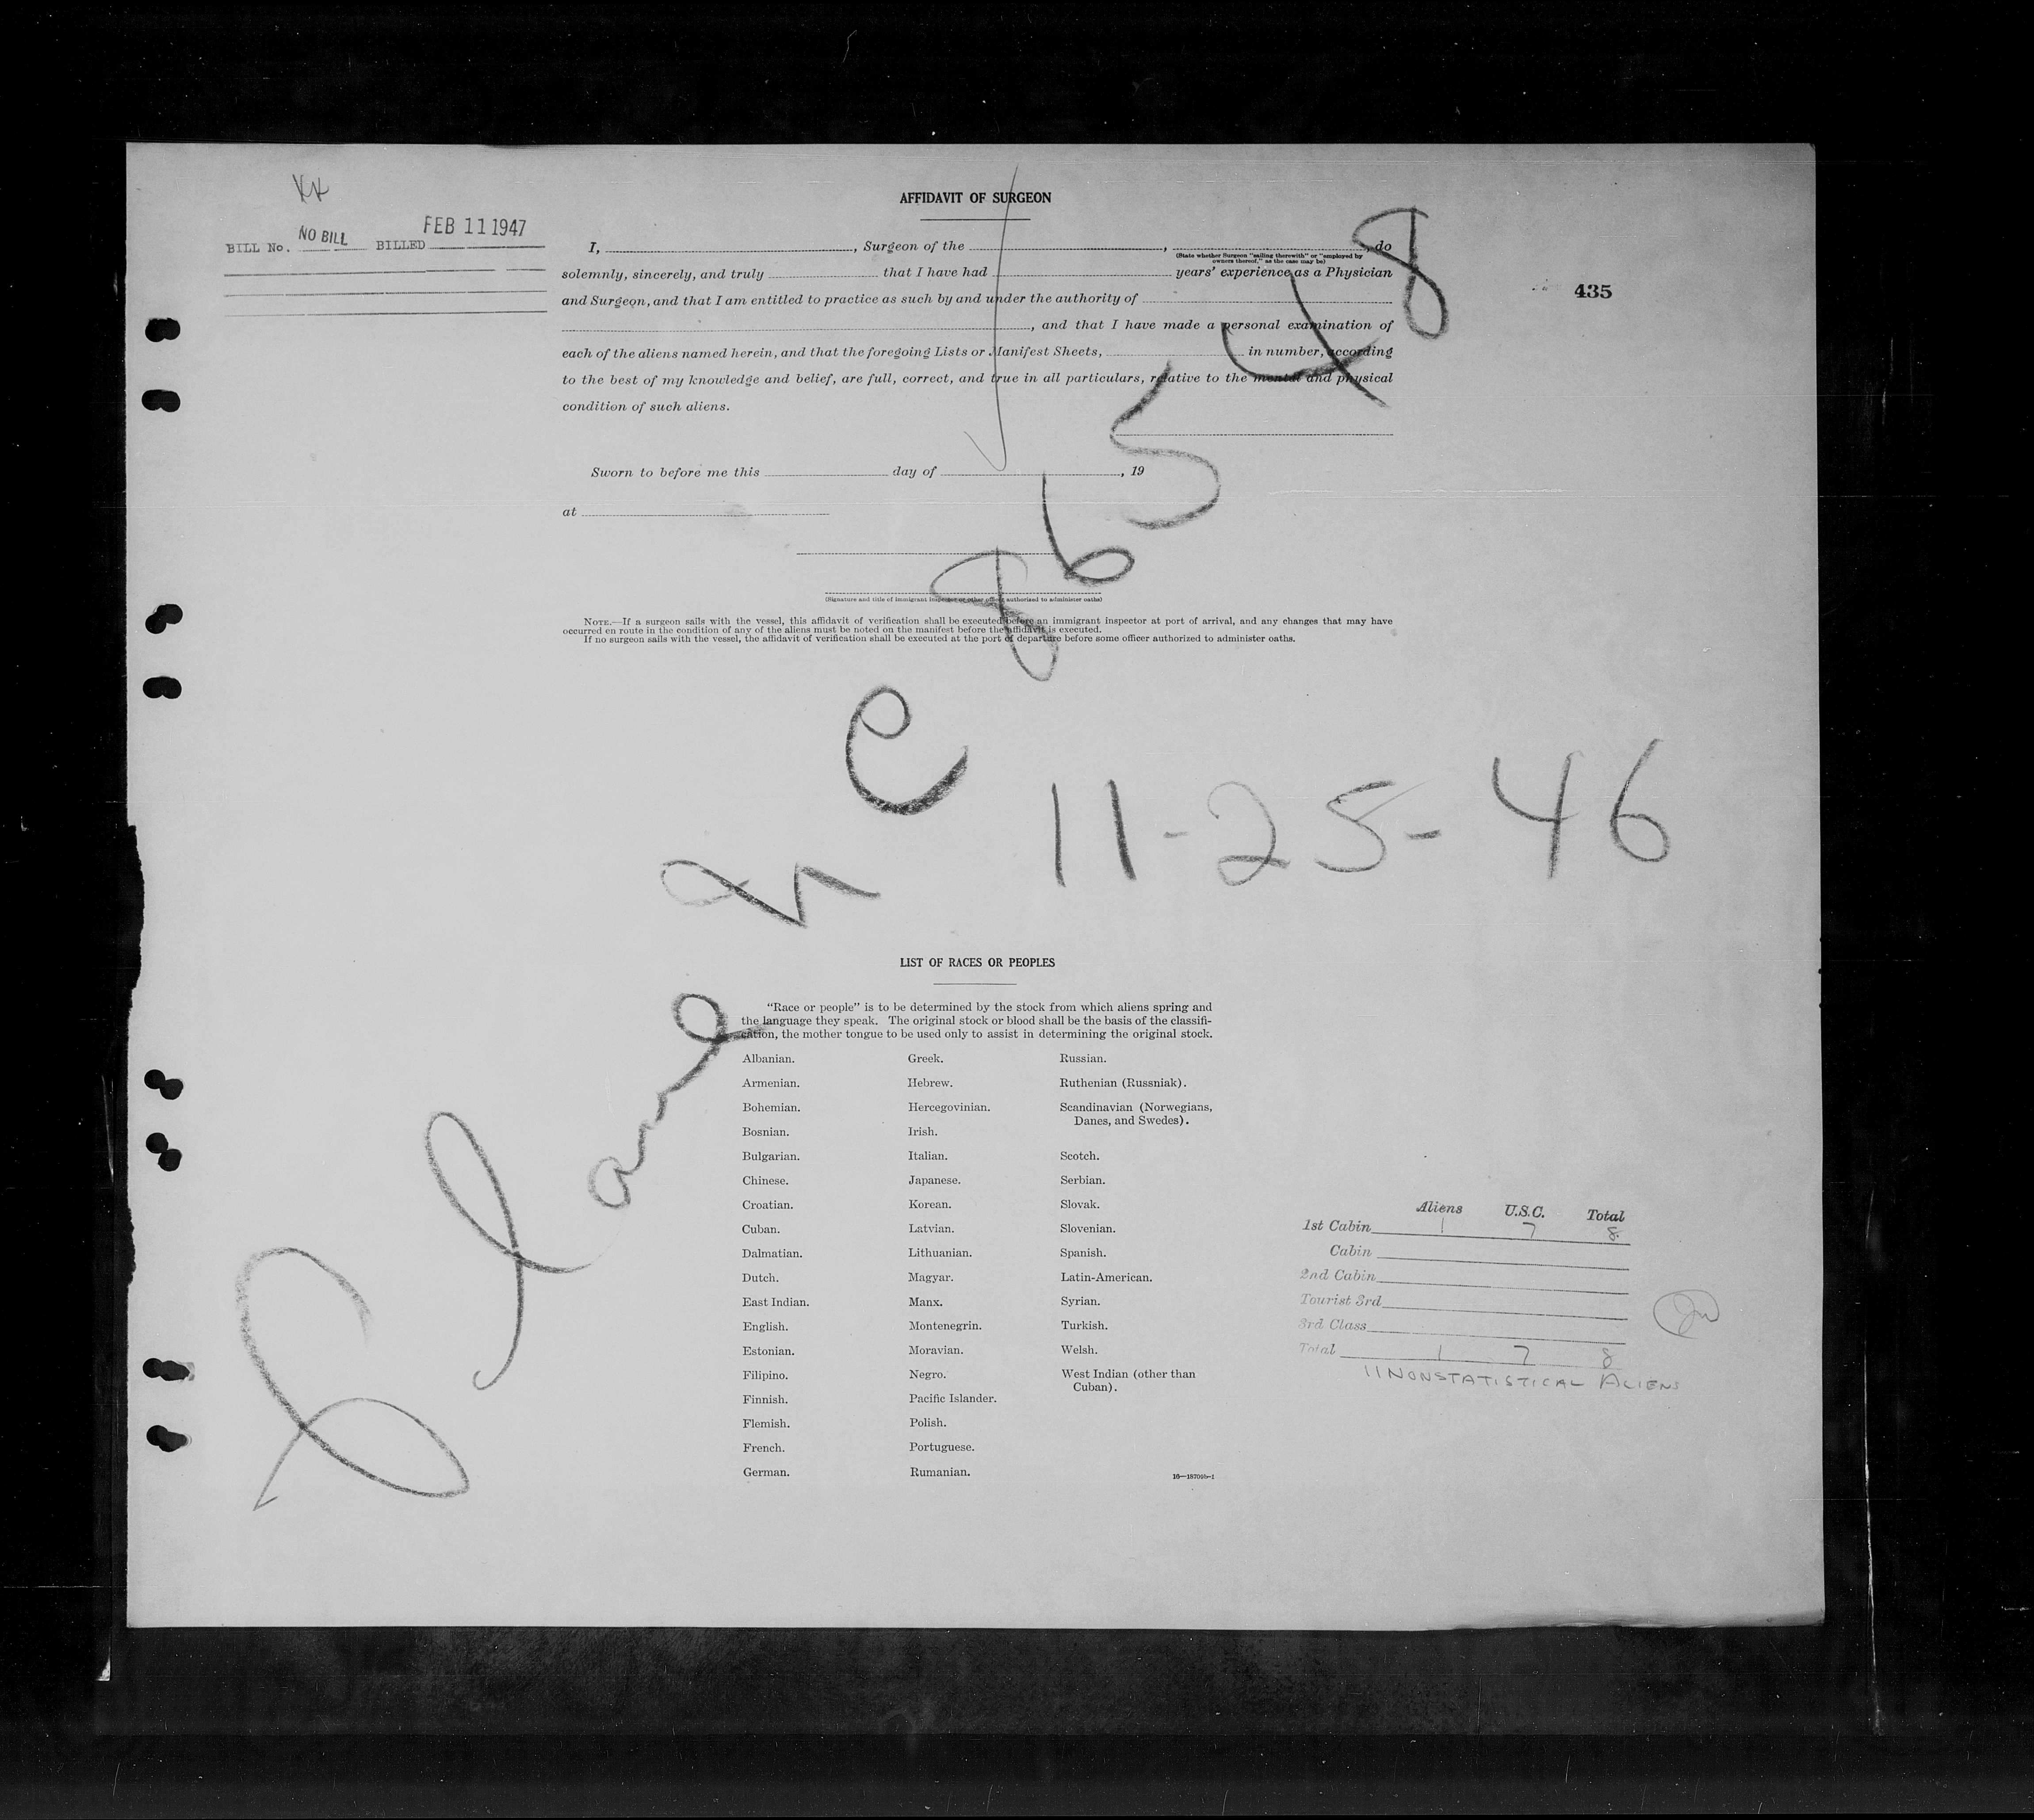 KK
BILL No. NO BILL BILLED FEB 11 1947
AFFIDAVIT OF SURGEON
I, , Surgeon of the , , do
(State whether Surgeon "sailing therewith" or "employed by
owners thereof," as the case may be)
solemnly, sincerely, and truly that I have had years' experience as a Physician
and Surgeon, and that I am entitled to practice as such by and under the authority of
, and that I have made a personal examination of
each of the aliens named herein, and that the foregoing Lists or Manifest Sheets, in number, according
to the best of my knowledge and belief, are full, correct, and true in all particulars, relative to the mental and physical
condition of such aliens.
435
Sworn to before me this day of , 19
at
(Signature and title of immigrant inspector or other officer authorized to administer oaths)
NOTE.—If a surgeon sails with the vessel, this affidavit of verification shall be executed before an immigrant inspector at port of arrival, and any changes that may have
occurred en route in the condition of any of the aliens must be noted on the manifest before the affidavit is executed.
If no surgeon sails with the vessel, the affidavit of verification shall be executed at the port of departure before some officer authorized to administer oaths.
Plane NC 86548
11-25-46
LIST OF RACES OR PEOPLES
"Race or people" is to be determined by the stock from which aliens spring and
the language they speak. The original stock or blood shall be the basis of the classifi-
cation, the mother tongue to be used only to assist in determining the original stock.
Albanian. Greek. Russian.
Armenian. Hebrew. Ruthenian (Russniak).
Bohemian. Hercegovinian. Scandinavian (Norwegians,
Danes, and Swedes).
Bosnian. Irish.
Bulgarian. Italian. Scotch.
Chinese. Japanese. Serbian.
Croatian. Korean. Slovak.
Cuban. Latvian. Slovenian.
Dalmatian. Lithuanian. Spanish.
Dutch. Magyar. Latin-American.
East Indian. Manx. Syrian.
English. Montenegrin. Turkish.
Estonian. Moravian. Welsh.
Filipino. Negro. West Indian (other than
Cuban).
Finnish. Pacific Islander.
Flemish. Polish.
French. Portuguese.
German. Rumanian.
16—18709b-1
Aliens U.S.C. Total
1st Cabin 1 7 8
Cabin
2nd Cabin
Tourist 3rd
3rd Class
Total 1 7 8
11 NONSTATISTICAL ALIENS